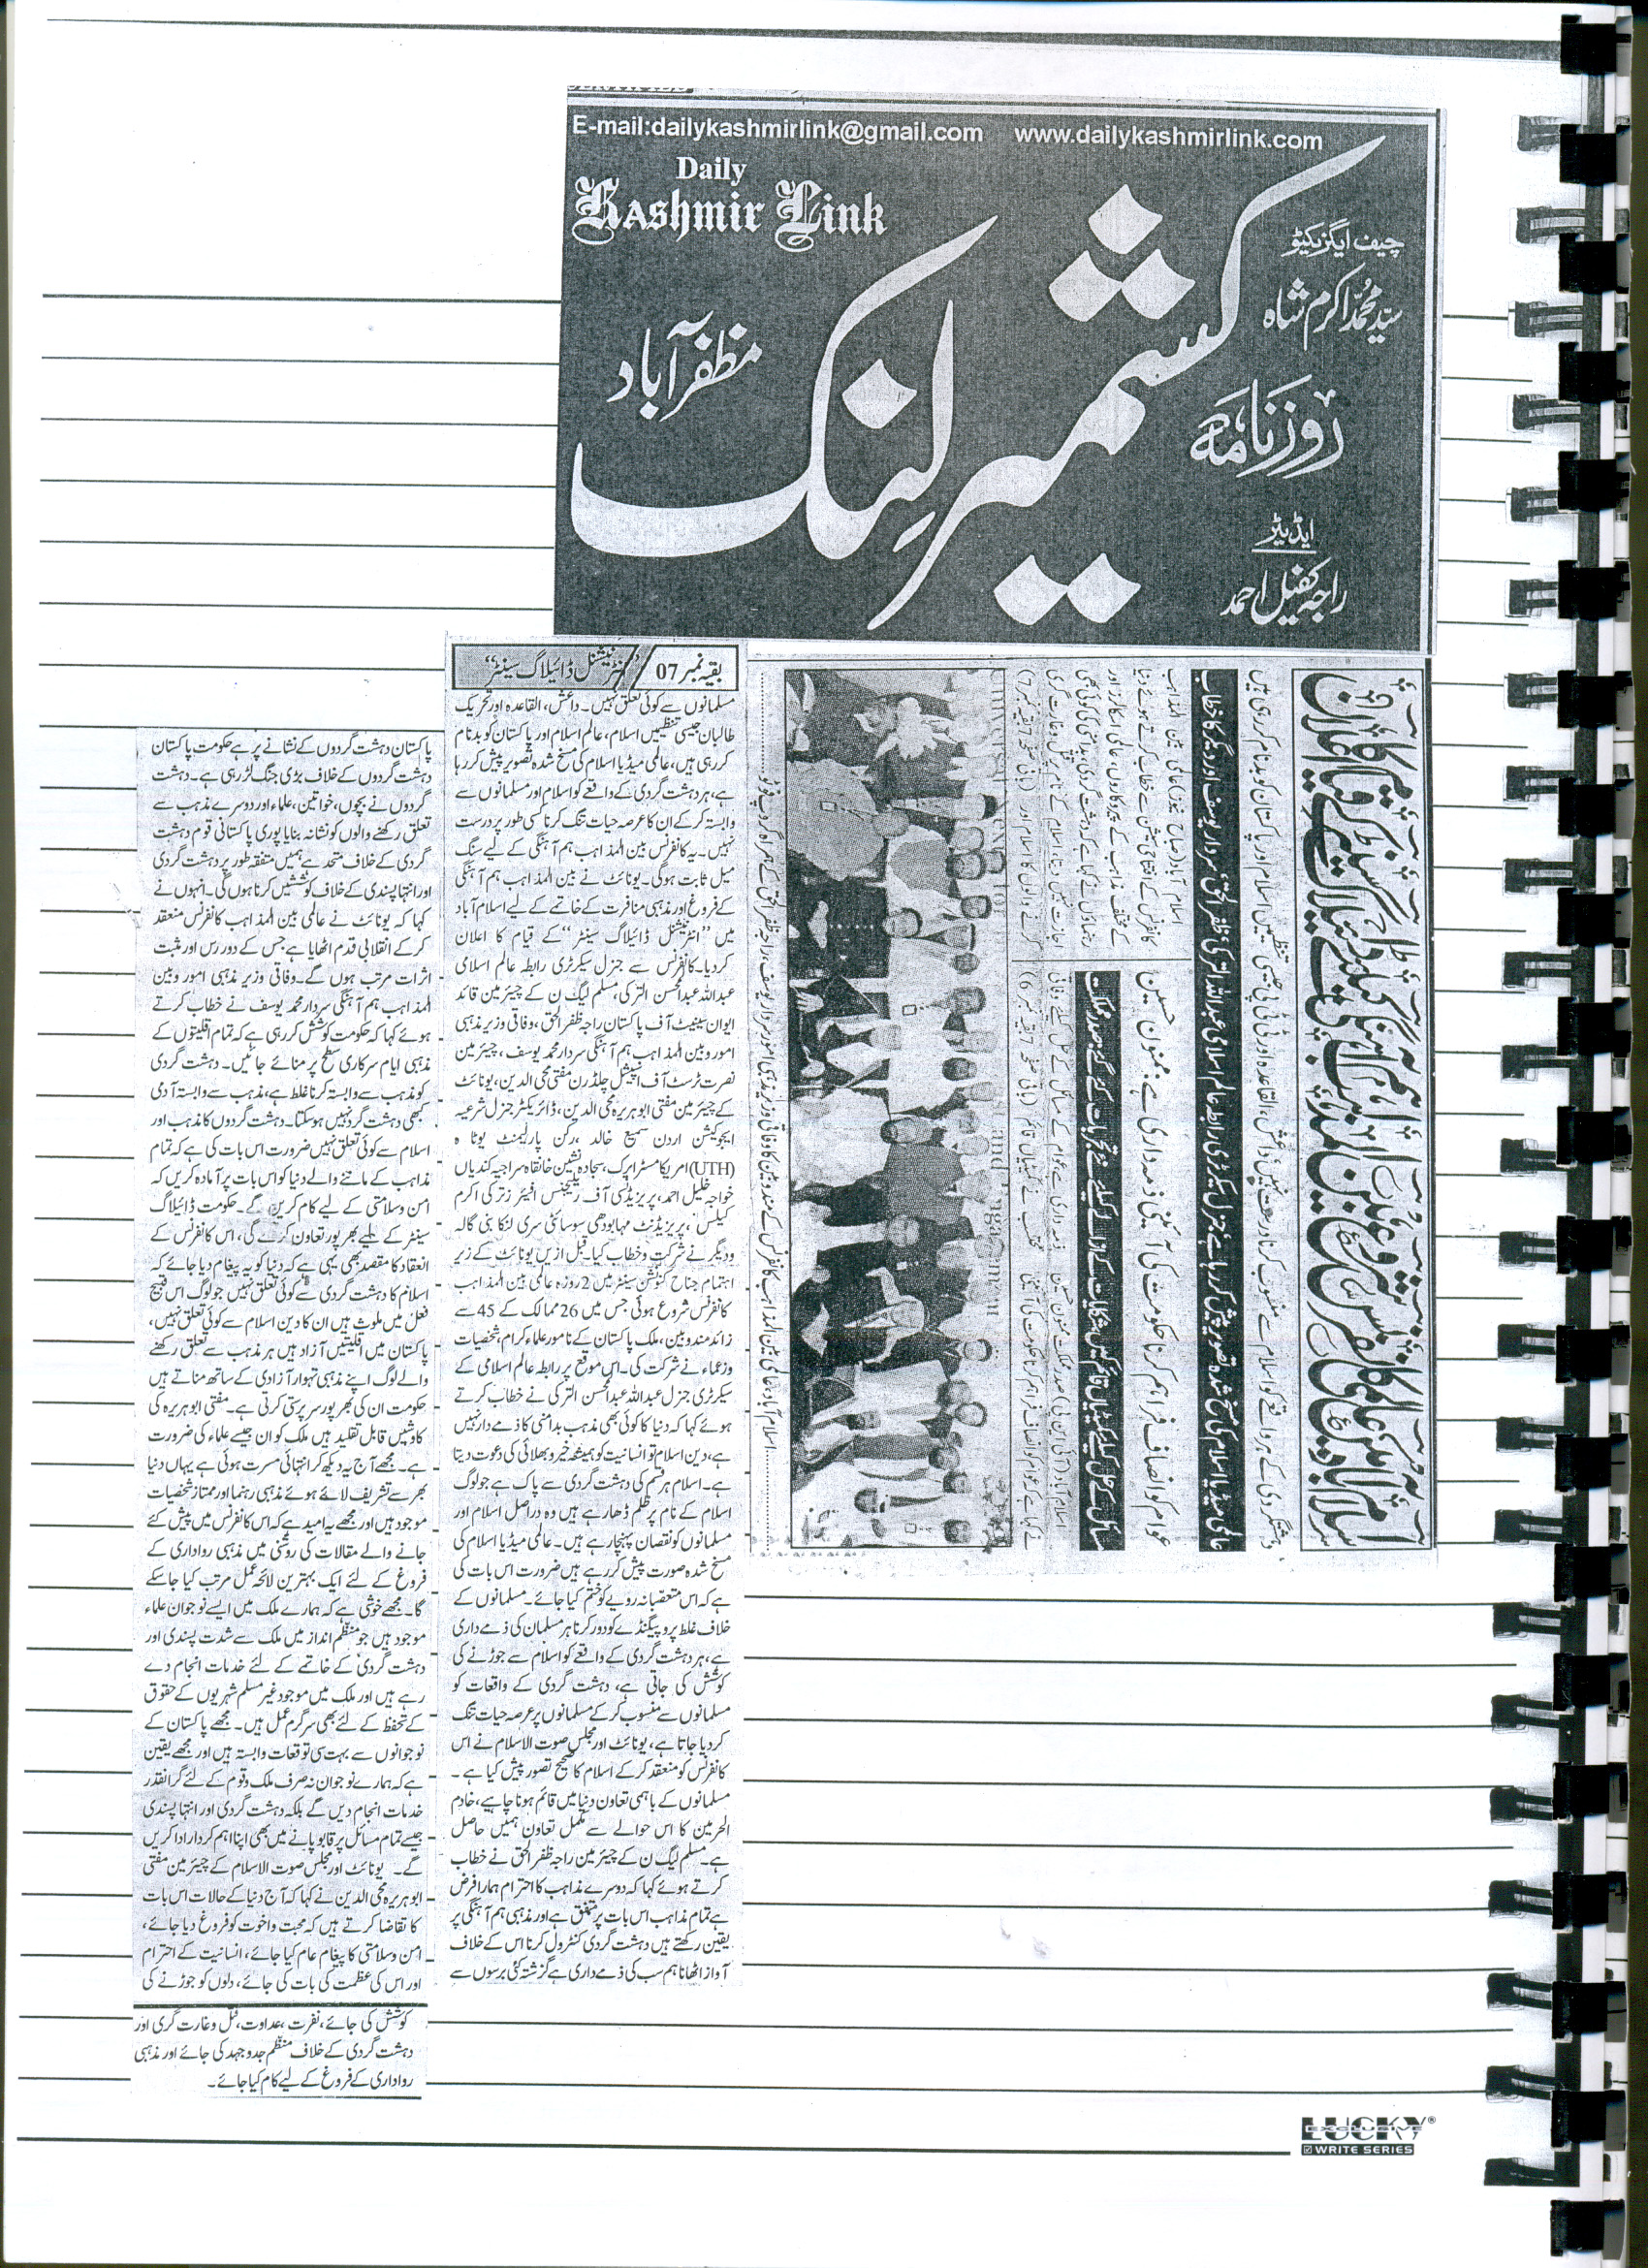 E-mail:dailykashmirlink@gmail.com www.dailykashmirlink.com
Daily
Kashmir Link
چیف ایگزیکٹو
سیّد محمّد اکرم شاہ
روزنامہ
کشمیر لنک
مظفرآباد
ایڈیٹر
راجہ کفیل احمد
عالمی میڈیا اسلام کی مسخ شدہ تصویر پیش کر رہا ہے، جنرل سیکرٹری رابطہ عالم اسلامی عبداللہ الترکی، ظفر الحق، سردار یوسف اور دیگر کا خطاب
عوام کو انصاف فراہم کرنا حکومت کی آئینی ذمہ داری ہے، ممنون حسین
بقیہ نمبر 07 انٹرنیشنل ڈائیلاگ سینٹر“
مسلمانوں سے کوئی تعلق نہیں۔ داعش، القاعدہ اور تحریک
طالبان جیسی تنظیمیں اسلام، عالم اسلام اور پاکستان کو بدنام
کر رہی ہیں، عالمی میڈیا اسلام کی مسخ شدہ تصویر پیش کر رہا
ہے، ہر دہشت گردی کے واقعے کو اسلام اور مسلمانوں سے
وابستہ کر کے ان کا عرصہ حیات تنگ کرنا کسی طور پر درست
نہیں۔ یہ کانفرنس بین المذاہب ہم آہنگی کے لیے سنگ
میل ثابت ہوگی۔ یونائٹ نے بین المذاہب ہم آہنگی
کے فروغ اور مذہبی منافرت کے خاتمے کے لیے اسلام آباد
میں ”انٹرنیشنل ڈائیلاگ سینٹر“ کے قیام کا اعلان
کر دیا۔ کانفرنس سے جنرل سیکرٹری رابطہ عالم اسلامی
عبداللہ عبدالمحسن الترکی، مسلم لیگ ن کے چیئرمین قائد
ایوان سینیٹ آف پاکستان راجہ ظفر الحق، وفاقی وزیر مذہبی
امور و بین المذاہب ہم آہنگی سردار محمد یوسف، چیئرمین
نصرت ٹرسٹ آف اسپیشل چلڈرن مفتی محی الدین، یونائٹ
کے چیئرمین مفتی ابوہریرہ محی الدین، ڈائریکٹر جنرل شرعیہ
ایجوکیشن اردن سمیع خالد، رکن پارلیمنٹ یوٹا ہ
(UTH) امریکا مسٹر ایرک، سجادہ نشین خانقاہ سراجیہ کندیاں
خواجہ خلیل احمد، پریزیڈنسی آف ریلیجنس افیئرز ترکی اکرم
کیلس، پریزیڈنٹ مہابودھی سوسائٹی سری لنکا بنی گالہ
و دیگر نے شرکت و خطاب کیا۔ قبل ازیں یونائٹ کے زیر
اہتمام جناح کنونشن سینٹر میں 2 روزہ عالمی بین المذاہب
کانفرنس شروع ہوئی جس میں 26 ممالک کے 45 سے
زائد مندوبین، ملک پاکستان کے نامور علماء کرام، شخصیات
و زعماء نے شرکت کی۔ اس موقع پر رابطہ عالم اسلامی کے
سیکرٹری جنرل عبداللہ عبدالمحسن الترکی نے خطاب کرتے
ہوئے کہا کہ دنیا کا کوئی بھی مذہب بدامنی کا ذمے دار نہیں
ہے، دین اسلام تو انسانیت کو ہمیشہ خیر و بھلائی کی دعوت دیتا
ہے۔ اسلام ہر قسم کی دہشت گردی سے پاک ہے جو لوگ
اسلام کے نام پر ظلم ڈھا رہے ہیں وہ دراصل اسلام اور
مسلمانوں کو نقصان پہنچا رہے ہیں۔ عالمی میڈیا اسلام کی
مسخ شدہ صورت پیش کر رہے ہیں ضرورت اس بات کی
ہے کہ اس متعصبانہ رویے کو ختم کیا جائے۔ مسلمانوں کے
خلاف غلط پروپیگنڈے کو دور کرنا ہر مسلمان کی ذمے داری
ہے، ہر دہشت گردی کے واقعے کو اسلام سے جوڑنے کی
کوشش کی جاتی ہے، دہشت گردی کے واقعات کو
مسلمانوں سے منسوب کر کے مسلمانوں پر عرصہ حیات تنگ
کر دیا جاتا ہے، یونائٹ اور مجلس صوت الاسلام نے اس
کانفرنس کو منعقد کر کے اسلام کا صحیح تصور پیش کیا ہے۔
مسلمانوں کے باہمی تعاون دنیا میں قائم ہونا چاہیے، خادم
الحرمین کا اس حوالے سے مکمل تعاون ہمیں حاصل
ہے۔ مسلم لیگ ن کے چیئرمین راجہ ظفر الحق نے خطاب
کرتے ہوئے کہا کہ دوسرے مذاہب کا احترام ہمارا فرض
ہے تمام مذاہب اس بات پر متفق ہے اور مذہبی ہم آہنگی پر
یقین رکھتے ہیں دہشت گردی کنٹرول کرنا اس کے خلاف
آواز اٹھانا ہم سب کی ذمے داری ہے گزشتہ کئی برسوں سے
پاکستان دہشت گردوں کے نشانے پر ہے حکومت پاکستان
دہشت گردوں کے خلاف بڑی جنگ لڑ رہی ہے۔ دہشت
گردوں نے بچوں، خواتین، علماء اور دوسرے مذہب سے
تعلق رکھنے والوں کو نشانہ بنایا پوری پاکستانی قوم دہشت
گردی کے خلاف متحد ہے ہمیں متفقہ طور پر دہشت گردی
اور انتہا پسندی کے خلاف کوششیں کرنا ہوں گی۔ انہوں نے
کہا کہ یونائٹ نے عالمی بین المذاہب کانفرنس منعقد
کر کے انقلابی قدم اٹھایا ہے جس کے دور رس اور مثبت
اثرات مرتب ہوں گے۔ وفاقی وزیر مذہبی امور و بین
المذاہب ہم آہنگی سردار محمد یوسف نے خطاب کرتے
ہوئے کہا کہ حکومت کوشش کر رہی ہے کہ تمام اقلیتوں کے
مذہبی ایام سرکاری سطح پر منائے جائیں۔ دہشت گردی
کو مذہب سے وابستہ کرنا غلط ہے، مذہب سے وابستہ آدمی
کبھی دہشت گرد نہیں ہو سکتا۔ دہشت گردوں کا مذہب اور
اسلام سے کوئی تعلق نہیں ضرورت اس بات کی ہے کہ تمام
مذاہب کے ماننے والے دنیا کو اس بات پر آمادہ کریں کہ
امن و سلامتی کے لیے کام کریں گے۔ حکومت ڈائیلاگ
سینٹر کے لیے بھرپور تعاون کرے گی، اس کانفرنس کے
انعقاد کا مقصد بھی یہی ہے کہ دنیا کو یہ پیغام دیا جائے کہ
اسلام کا دہشت گردی سے کوئی تعلق نہیں جو لوگ اس قبیح
فعل میں ملوث ہیں ان کا دین اسلام سے کوئی تعلق نہیں،
پاکستان میں اقلیتیں آزاد ہیں ہر مذہب سے تعلق رکھنے
والے لوگ اپنے مذہبی تہوار آزادی کے ساتھ مناتے ہیں
حکومت ان کی بھرپور سرپرستی کرتی ہے۔ مفتی ابوہریرہ کی
کاوشیں قابل تقلید ہیں ملک کو ان جیسے علماء کی ضرورت
ہے۔ مجھے آج یہ دیکھ کر انتہائی مسرت ہوئی ہے یہاں دنیا
بھر سے تشریف لائے ہوئے مذہبی رہنما اور ممتاز شخصیات
موجود ہیں اور مجھے یہ امید ہے کہ اس کانفرنس میں پیش کئے
جانے والے مقالات کی روشنی میں مذہبی رواداری کے
فروغ کے لئے ایک بہترین لائحہ عمل مرتب کیا جا سکے
گا۔ مجھے خوشی ہے کہ ہمارے ملک میں ایسے نوجوان علماء
موجود ہیں جو منظّم انداز میں ملک سے شدت پسندی اور
دہشت گردی کے خاتمے کے لئے خدمات انجام دے
رہے ہیں اور ملک میں موجود غیر مسلم شہریوں کے حقوق
کے تحفظ کے لئے بھی سرگرم عمل ہیں۔ مجھے پاکستان کے
نوجوانوں سے بہت سی توقعات وابستہ ہیں اور مجھے یقین
ہے کہ ہمارے نوجوان نہ صرف ملک و قوم کے لئے گرانقدر
خدمات انجام دیں گے بلکہ دہشت گردی اور انتہا پسندی
جیسے تمام مسائل پر قابو پانے میں بھی اپنا اہم کردار ادا کریں
گے۔ یونائٹ اور مجلس صوت الاسلام کے چیئرمین مفتی
ابوہریرہ محی الدین نے کہا کہ آج دنیا کے حالات اس بات
کا تقاضا کرتے ہیں کہ محبت و اخوت کو فروغ دیا جائے،
امن و سلامتی کا پیغام عام کیا جائے، انسانیت کے احترام
اور اس کی عظمت کی بات کی جائے، دلوں کو جوڑنے کی
کوشش کی جائے، نفرت، عداوت، قتل و غارت گری اور
دہشت گردی کے خلاف منظّم جدوجہد کی جائے اور مذہبی
رواداری کے فروغ کے لیے کام کیا جائے۔
LUCKY®
EXCLUSIVE
WRITE SERIES